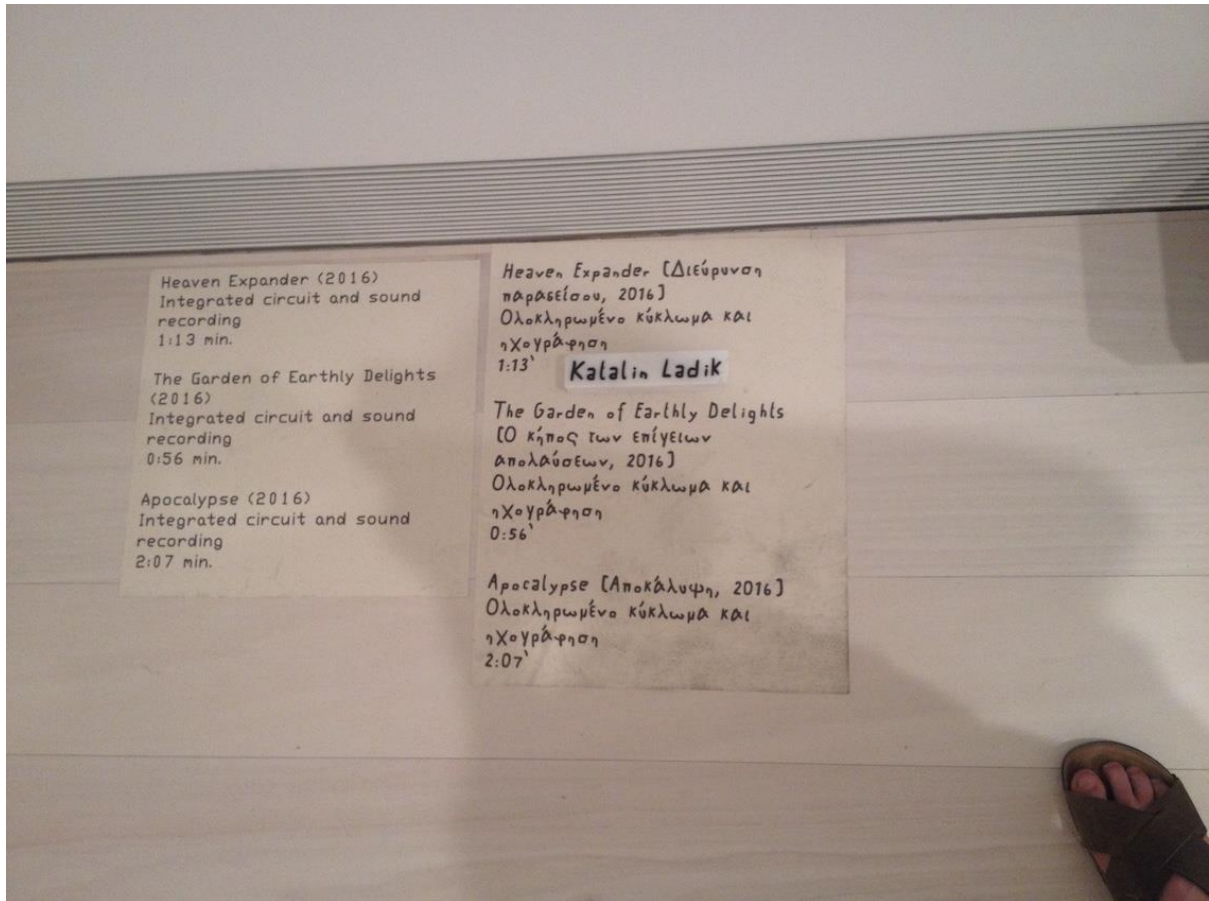 Heaven Expander (2016)
Integrated circuit and sound
recording
1:13 min.
The Garden of Earthly Delights
(2016)
Integrated circuit and sound
recording
0:56 min.
Apocalypse (2016)
Integrated circuit and sound
recording
2:07 min.
Heaven Expander [Διεύρυνση
παραδείσου, 2016]
Ολοκληρωμένο κύκλωμα και
ηχογράφηση
1:13'
Katalin Ladik
The Garden of Earthly Delights
[Ο κήπος των επίγειων
απολαύσεων, 2016]
Ολοκληρωμένο κύκλωμα και
ηχογράφηση
0:56'
Apocalypse [Αποκάλυψη, 2016]
Ολοκληρωμένο κύκλωμα και
ηχογράφηση
2:07'